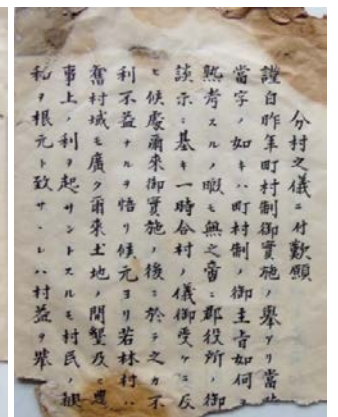 分村之儀ニ付歎願
謹白昨年町村制御實施ノ擧アリ當時
當字ノ如キハ町村制ノ御主旨如何ヲ
熟考スルノ暇モ無之當ニ郡役所ノ御
談示ニ基キ一時合村ノ儀御受ケニ反
ヒ候處爾來御實施ノ後ニ於テ之カ不
利不益ナルヲ悟リ候元ヨリ若林村ハ
舊村域モ廣ク爾來土地ノ開墾及ヒ農
事上ノ利ヲ起サントスルモ村民ノ
私ヲ根元ト致サヽレハ村益ヲ擧